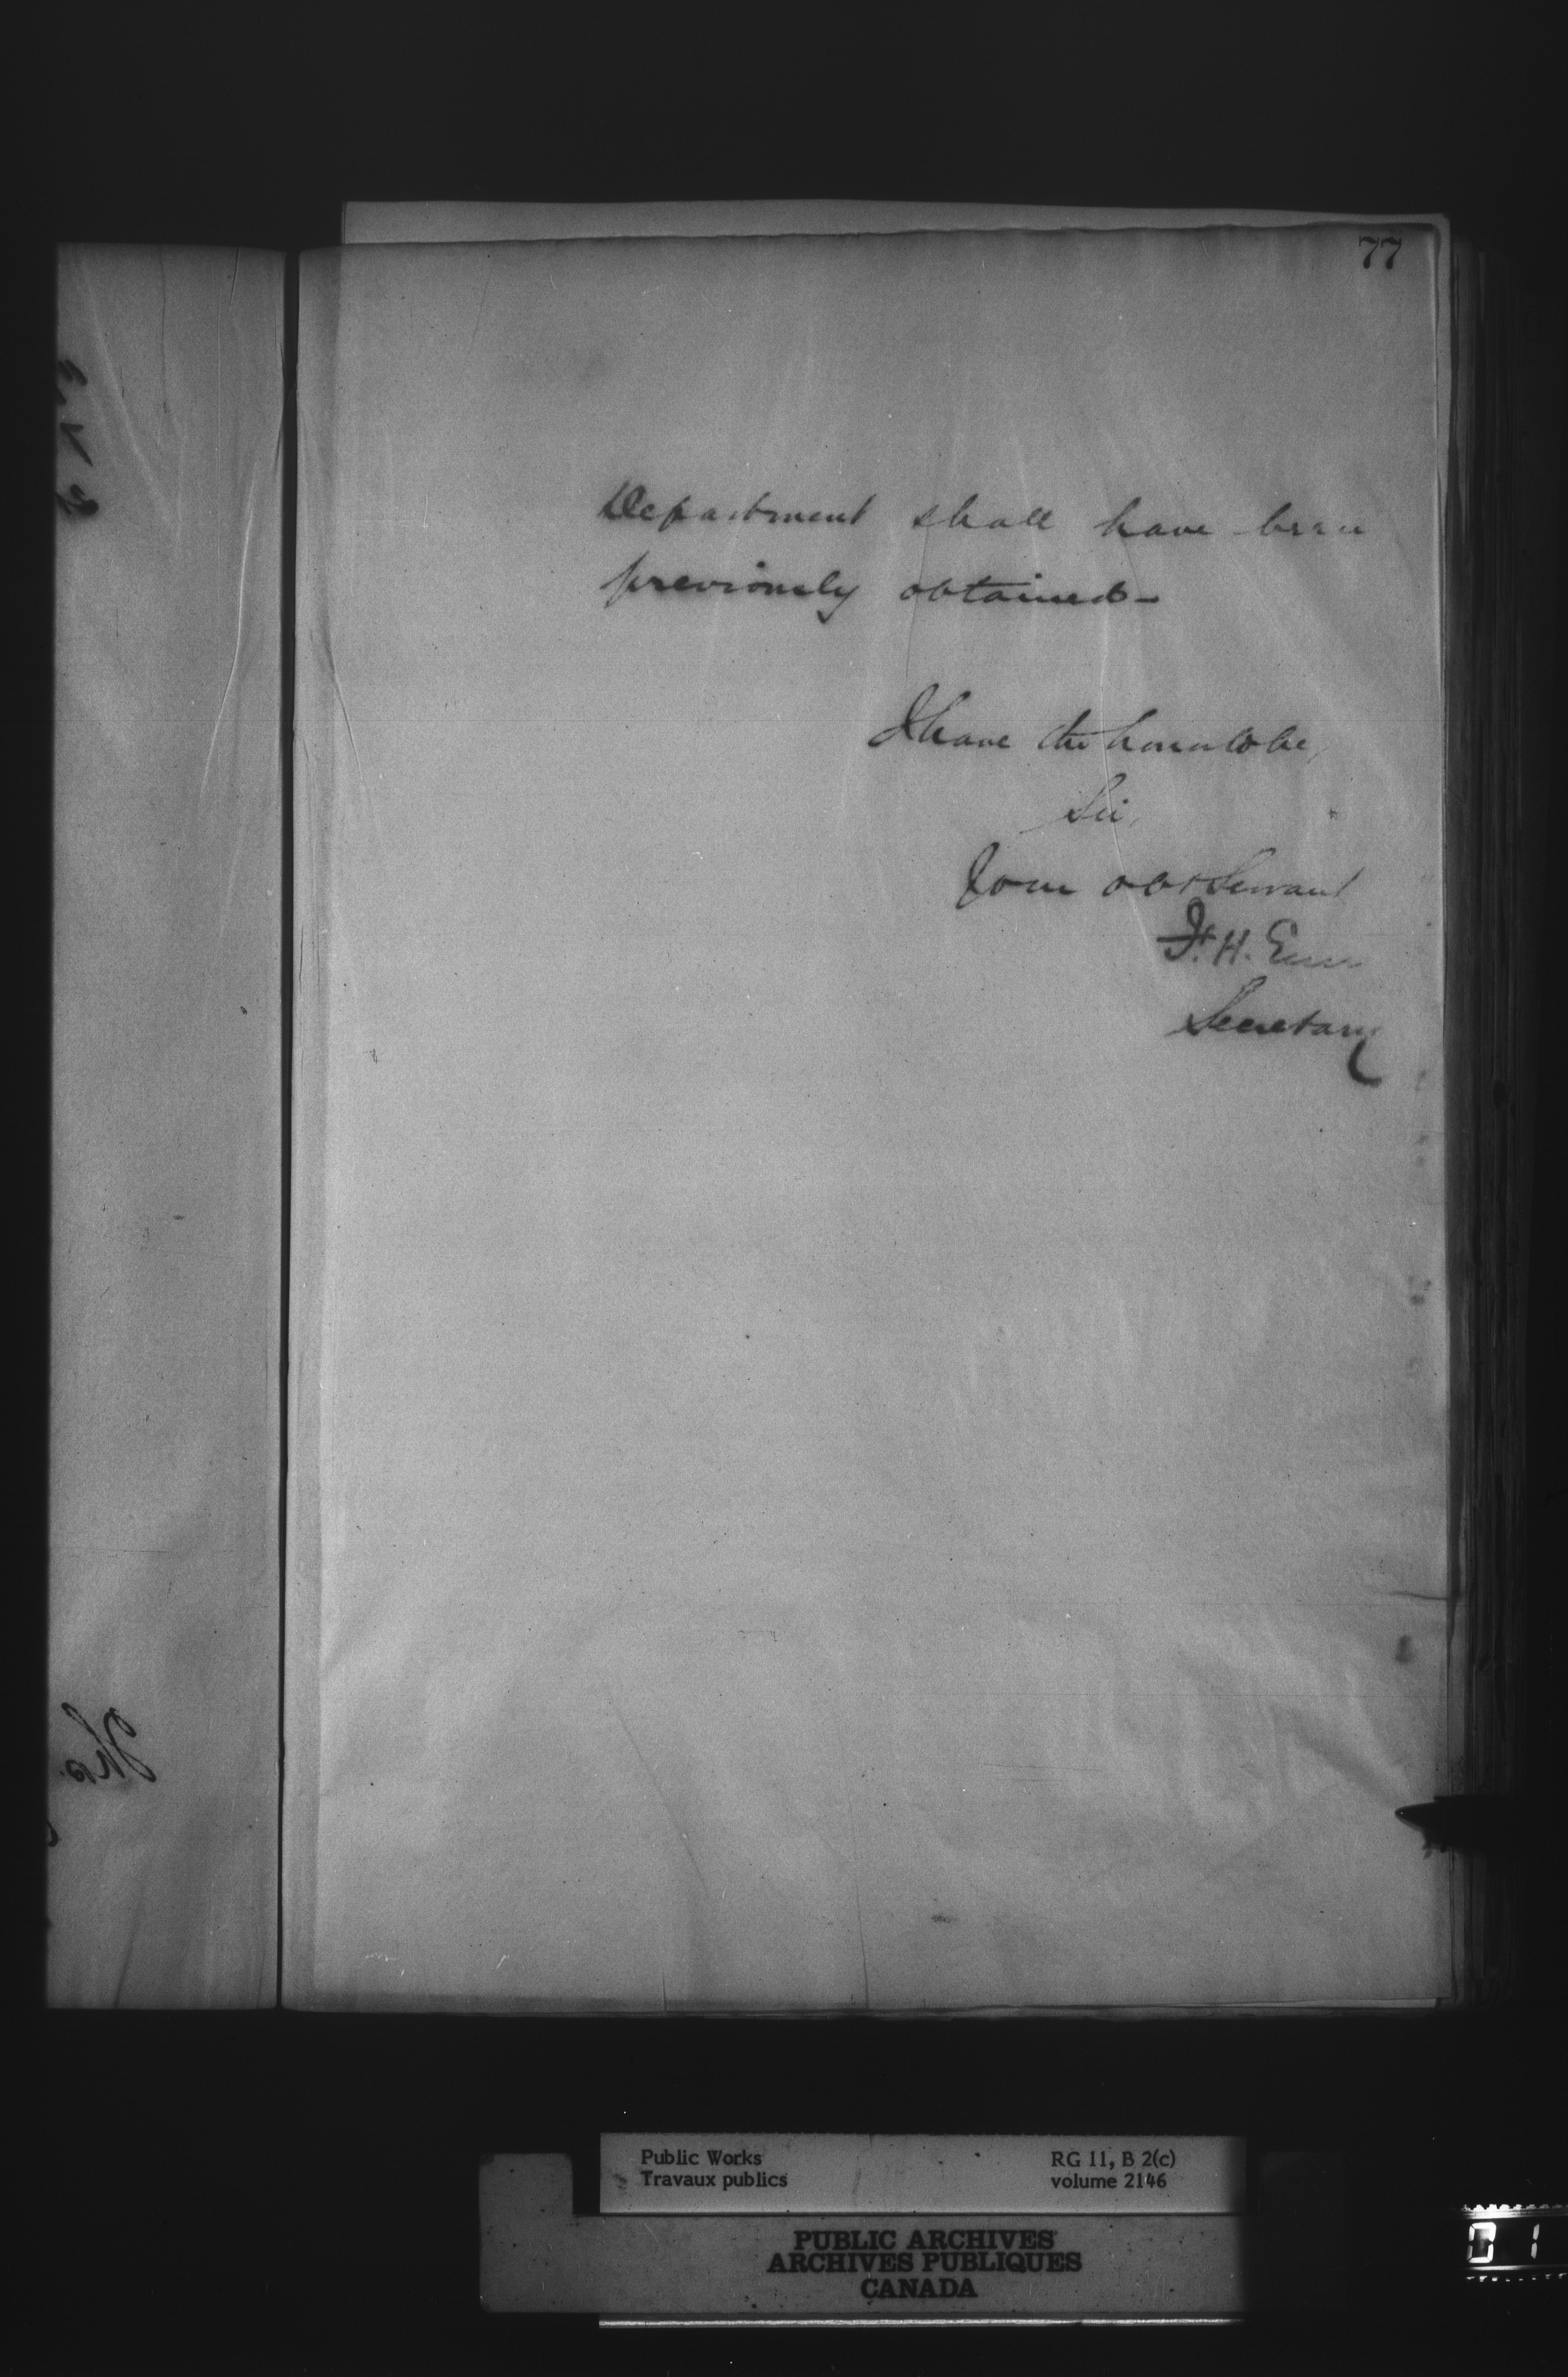 77
Department shall have been
previously obtained—
I have the honor to be,
Sir,
Your obt Servant
F. H. Ennis
Secretary
Public Works
Travaux publics
RG 11, B 2(c)
volume 2146
PUBLIC ARCHIVES
ARCHIVES PUBLIQUES
CANADA